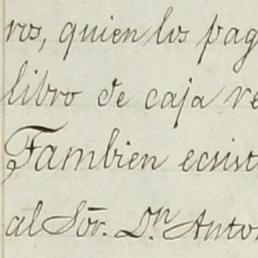 ros, quien los pag
libro de caja re
Tambien ecsist
al Sõr. Dn. Anto